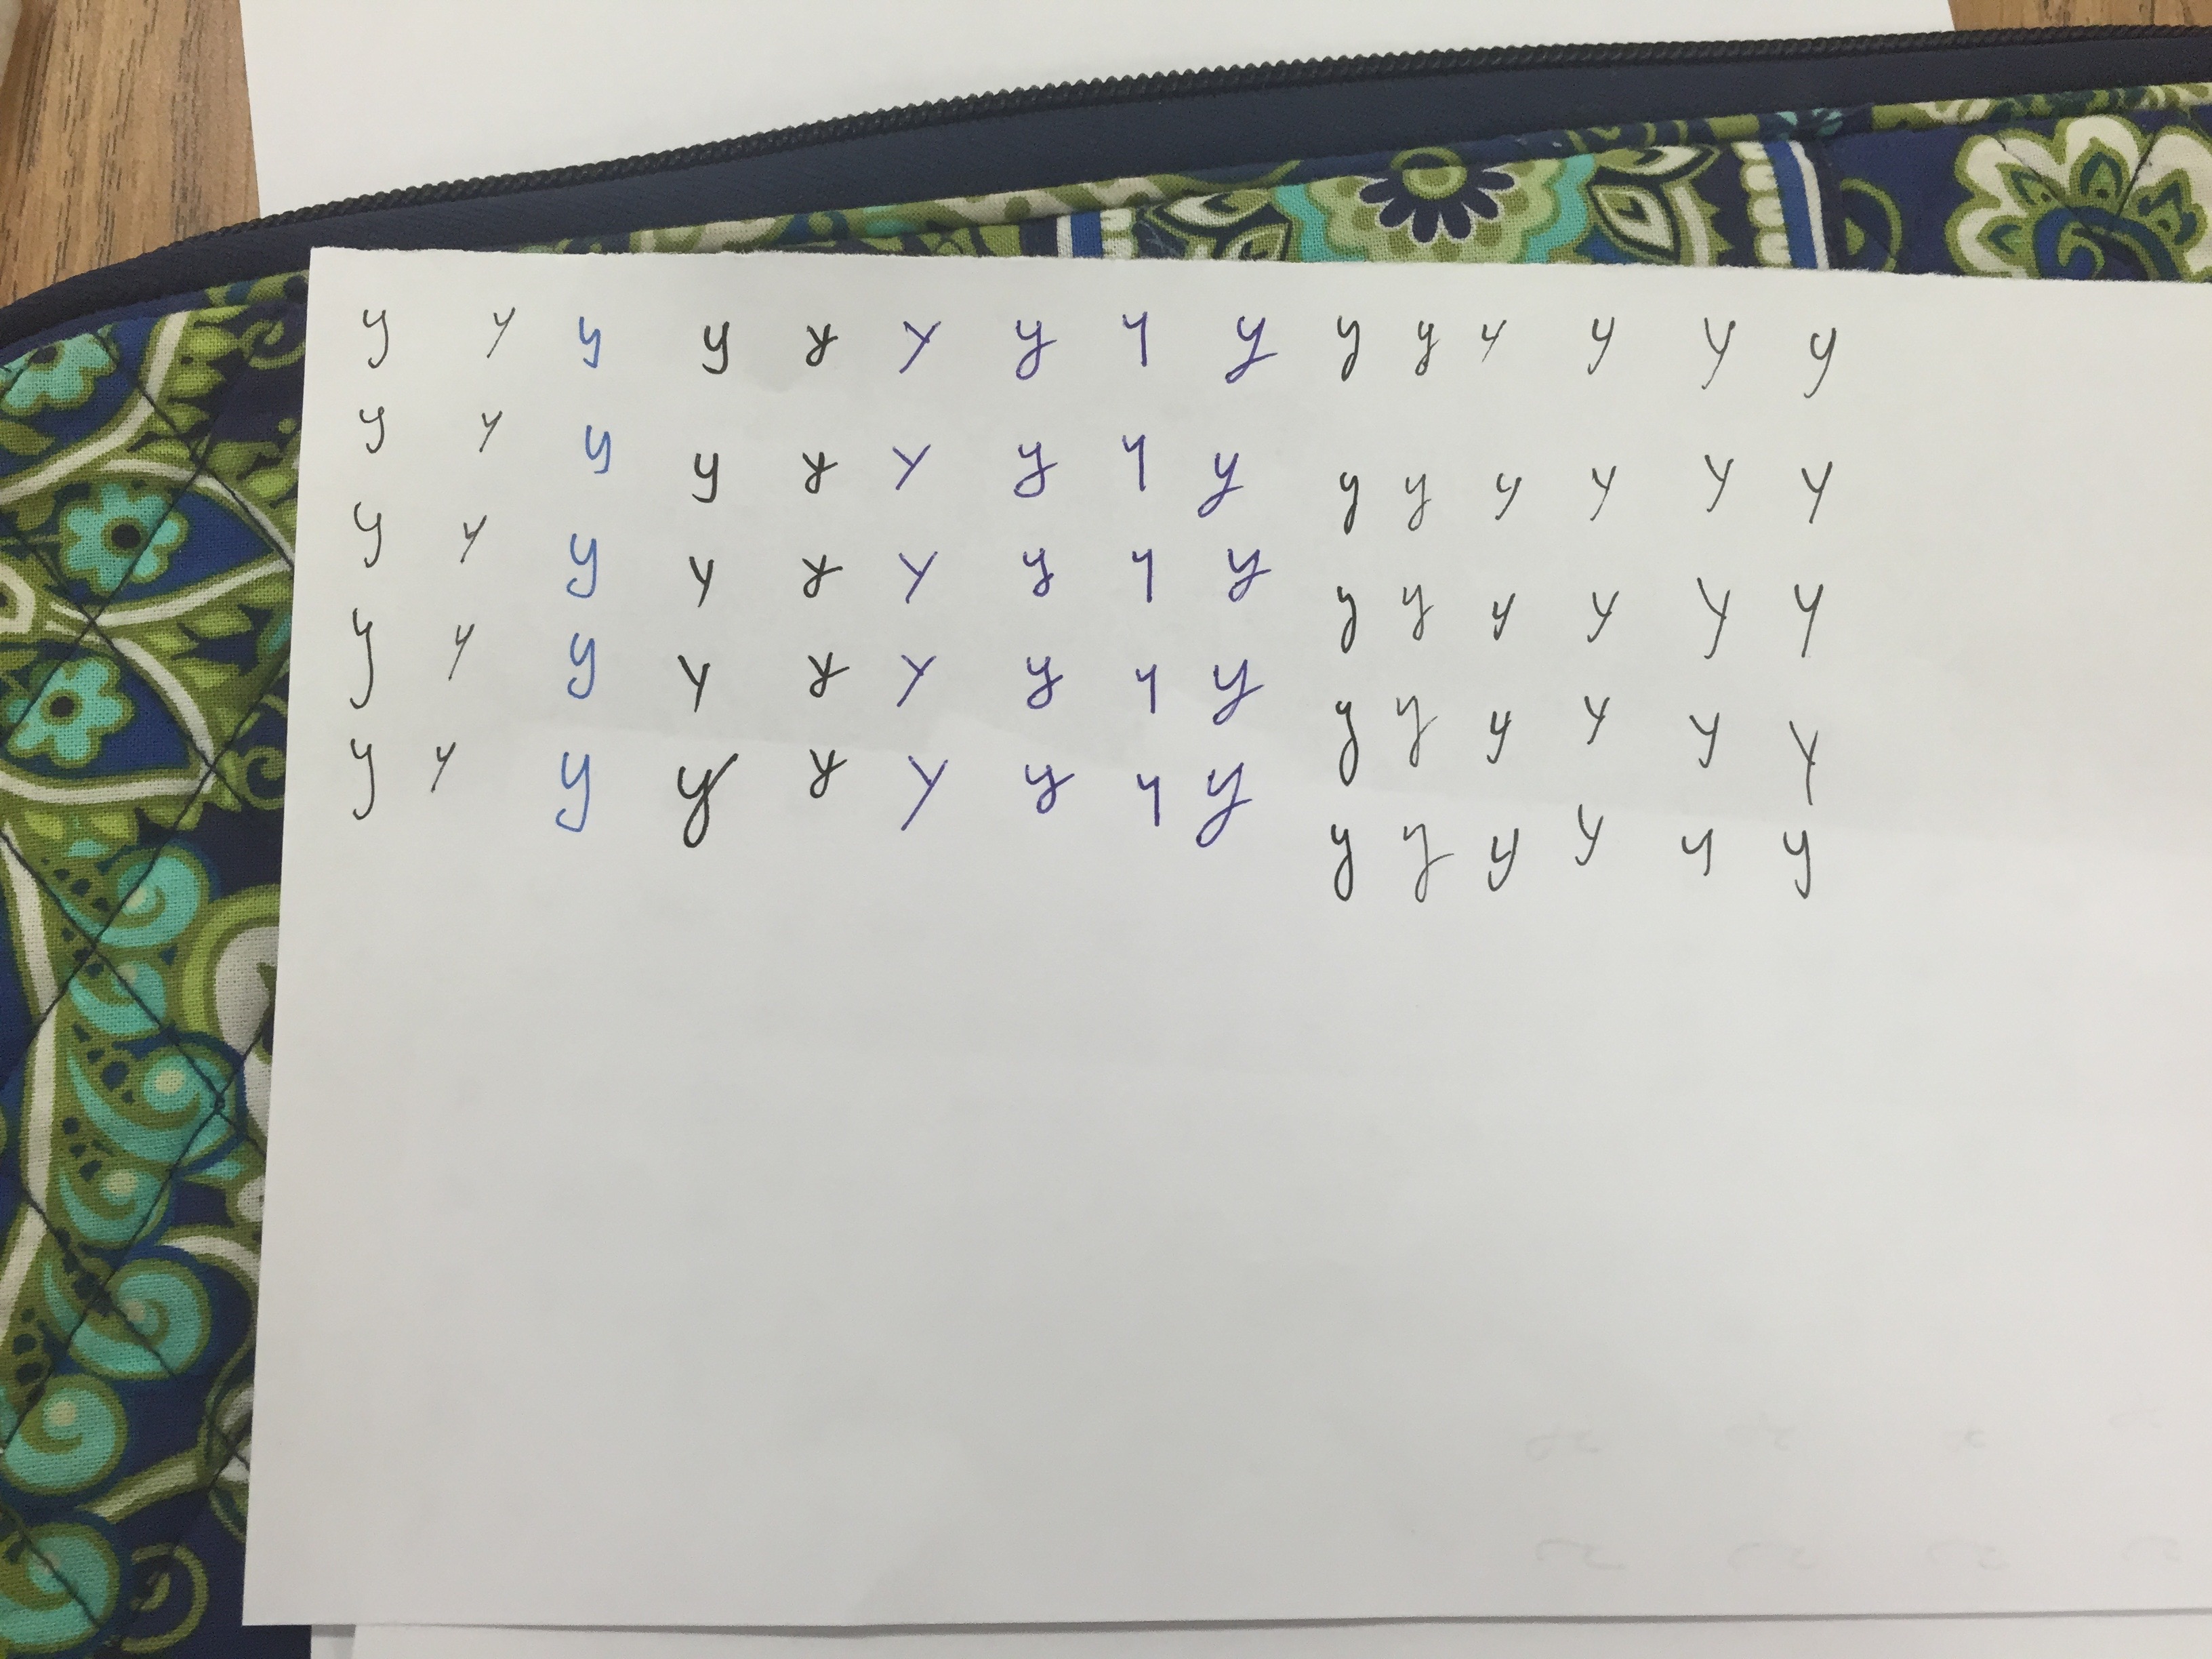 y y y y y y y y y y y y y y y
y y y y y y y y y y y y y y y
y y y y y y y y y y y y y y y
y y y y y y y y y y y y y y y
y y y y y y y y y y y y y y y